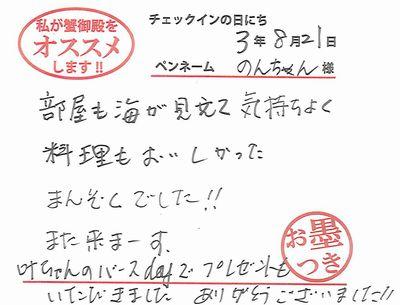 私が蟹御殿を
オススメ
します!!
チェックインの日にち
3年8月21日
ペンネーム のんちゃん 様
部屋も海が見えて気持ちよく
料理もおいしかった
まんぞくでした!!
また来まーす。
お墨つき
叶ちゃんのバースdayでプレゼントも
いただきました ありがとうございました!!